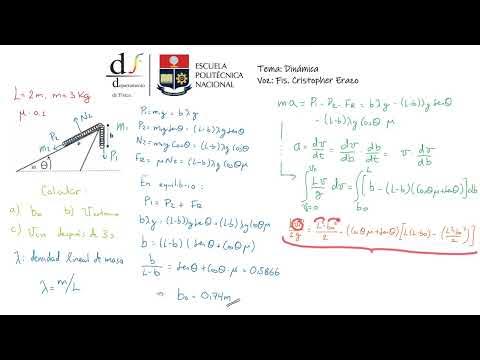 df
departamento
de Física
ESCUELA
POLITÉCNICA
NACIONAL
Tema: Dinámica
Voz: Fis. Cristopher Erazo
L = 2m, m = 3 Kg
N₂
P₂
m₁
P₁
θ
Calcular:
a) b₀ b)
c) después de 3s
λ: densidad lineal de masa
λ = m/L
P₁ = m₁g = bλg
P₂ = m₂g senθ = (L-b)λg senθ
N₂ = m₂g Cosθ = (L-b)λg Cosθ
F_R2 = μN₂ = (L-b)λg Cosθ μ
En equilibrio:
P₁ = P₂ + F_R2
bλg = (L-b)λg senθ + (L-b)λg Cosθ μ
b = (L-b)(senθ + Cosθ μ)
b/(L-b) = senθ + Cosθ·μ = 0.5866
b₀ = 0.74m
ma = P₁ - P₂ - F_R2 = bλg - (L-b)λg senθ
- (L-b)λg Cosθ μ
a = dv/dt = dv/dt db/db = v dv/db
∫ Lv/g dv = ∫ [b - (L-b)(Cosθ μ + senθ)] db